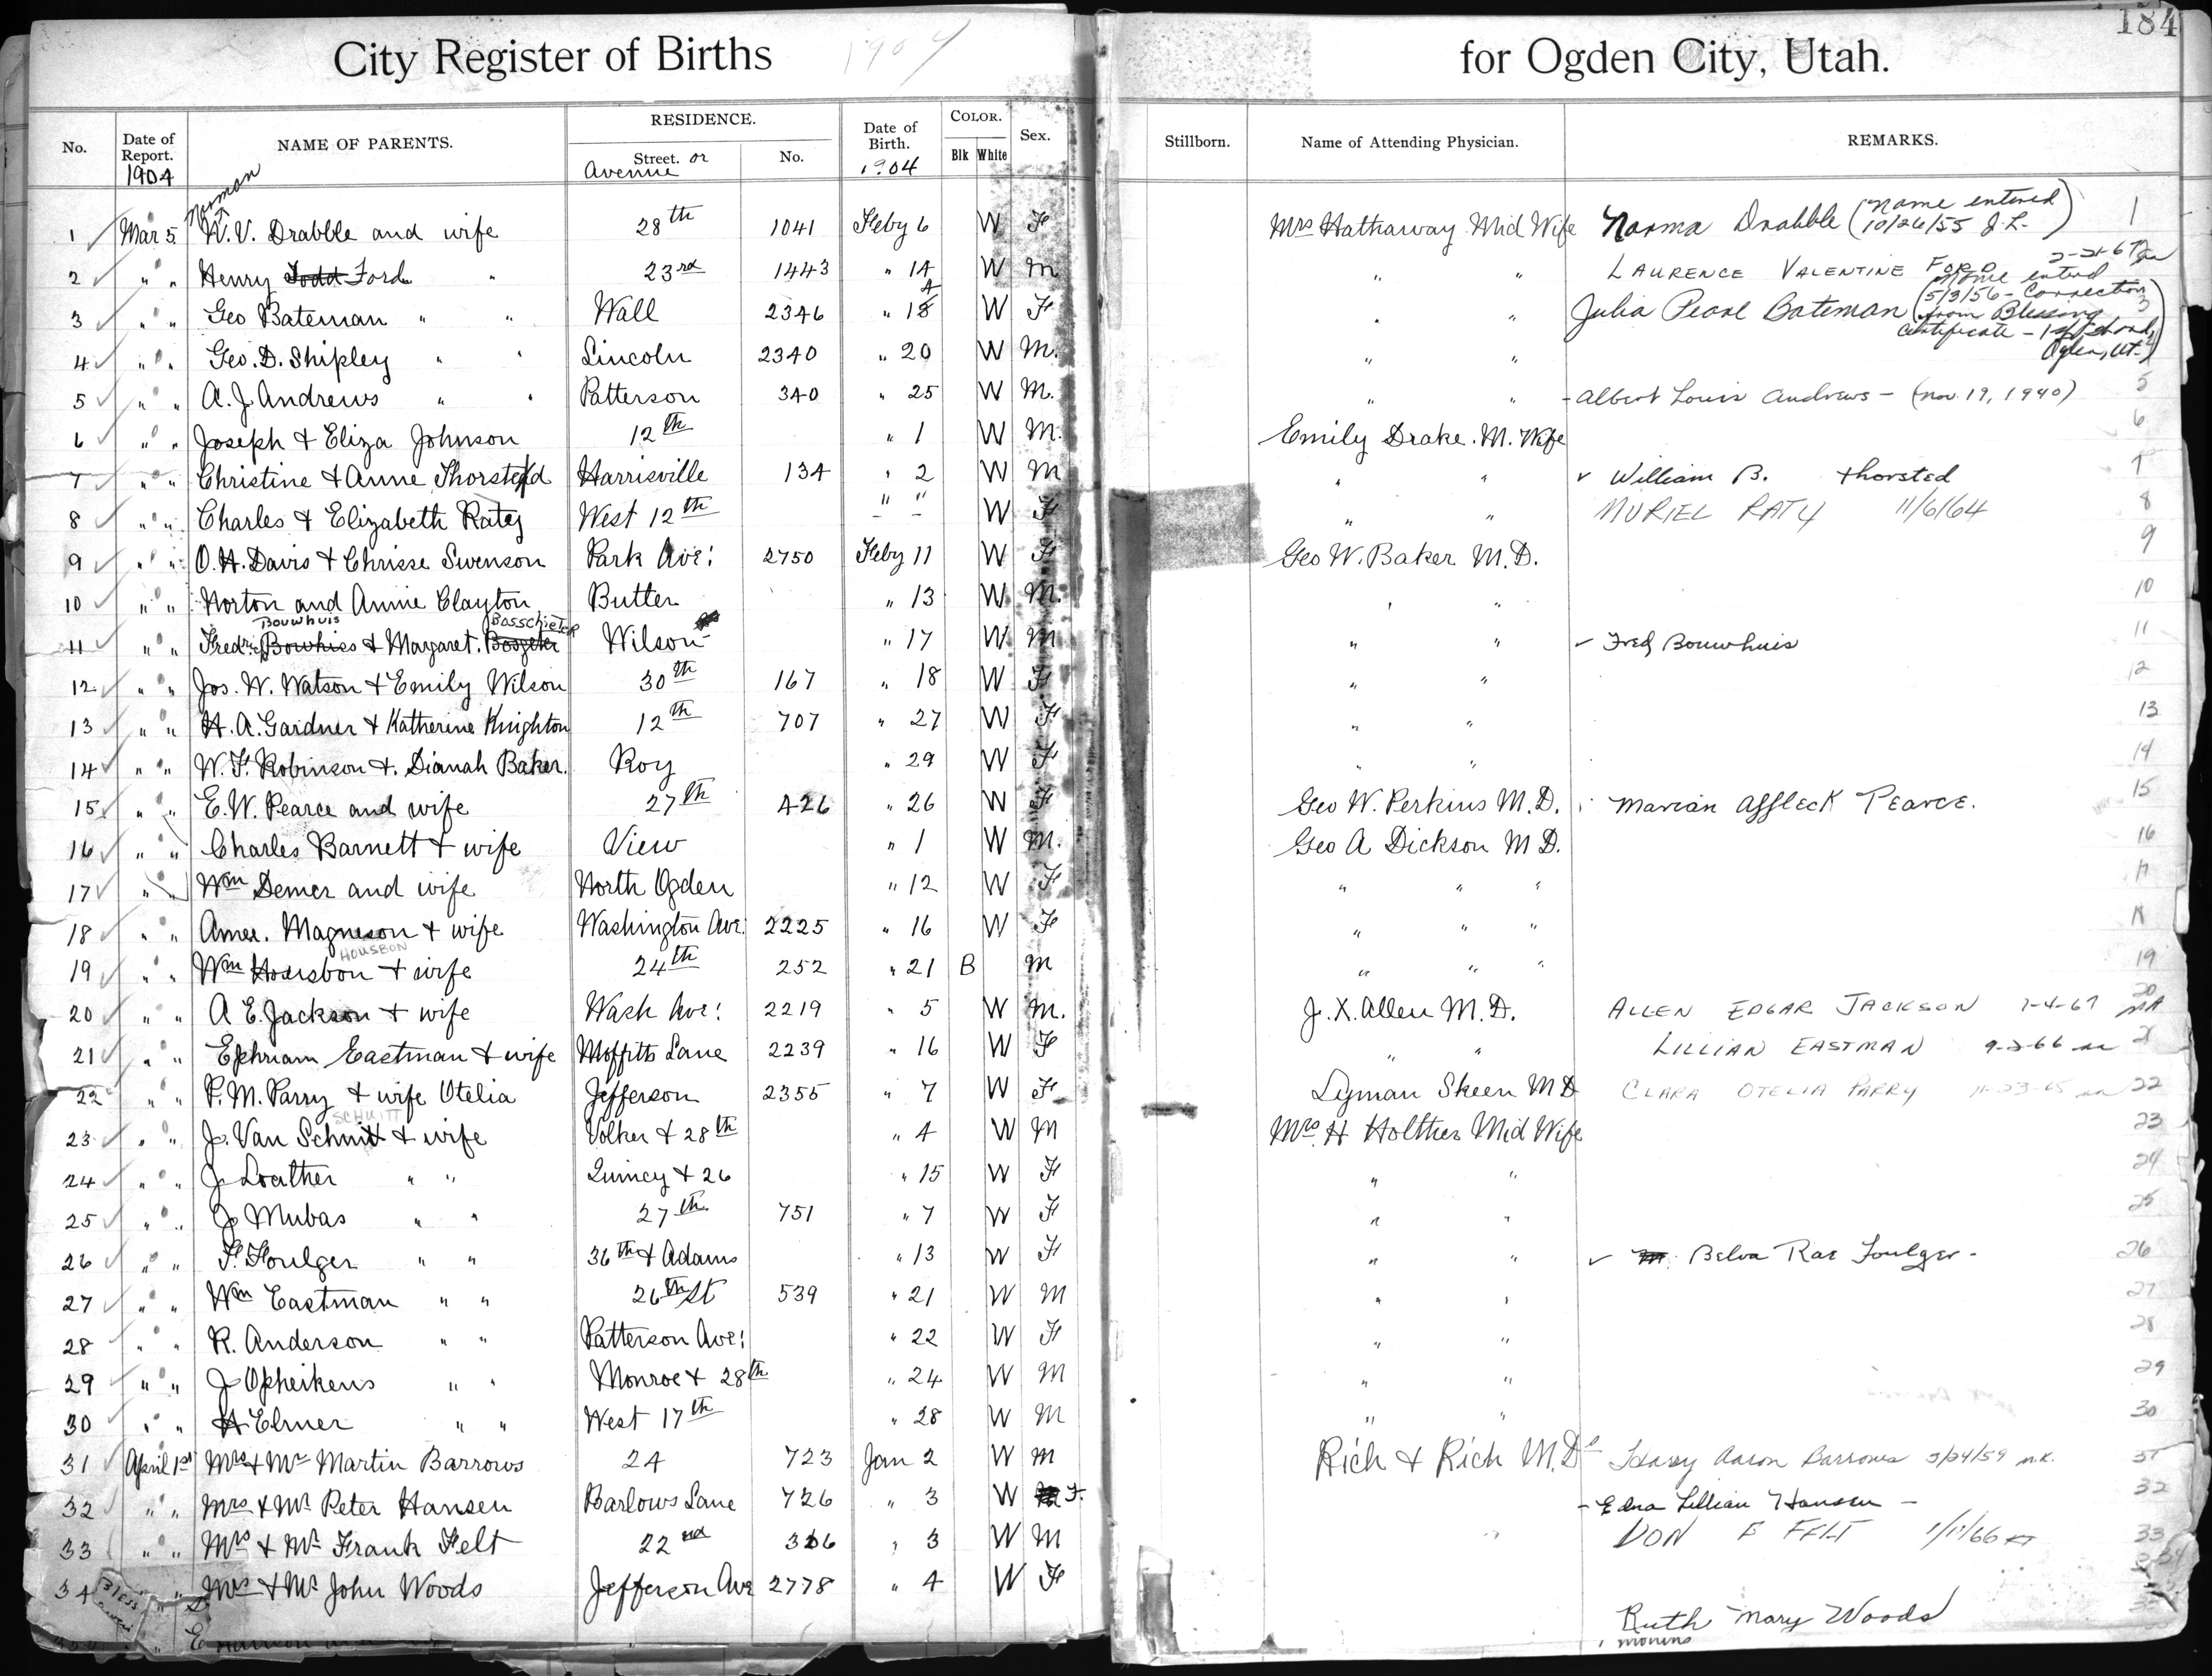 184
City Register of Births 1904 for Ogden City, Utah.
No. Date of Report. 1904 NAME OF PARENTS. RESIDENCE. Street. or Avenue No. Date of Birth. 1904 COLOR. Blk White Sex. Stillborn. Name of Attending Physician. REMARKS.
Norman
1 Mar 5 W. V. Drabble and wife 28th 1041 Feby 6 W F Mrs Hathaway Mid Wife Norma Drabble (Name entered 10/26/55 J.L.) 1
2 " " Henry Todd Ford " 23rd 1443 " 14 W M " " LAURENCE VALENTINE FORD 2-21-67
3 " " Geo Bateman " " Wall 2346 " 18 4 W F " " Julia Pearl Bateman (Name entered 5/3/56 - Correction from Blessing Certificate - 1st Ward, Ogden, Ut.) 3
4 " " Geo. D. Shipley " " Lincoln 2340 " 20 W M. " "
5 " " A. J. Andrews " " Patterson 340 " 25 W M. " " - Albert Louis Andrews - (Nov. 19, 1940) 5
6 " " Joseph & Eliza Johnson 12th " 1 W M. Emily Drake. M. Wife 6
7 " " Christine & Anne Thorsted Harrisville 134 " 2 W M " " William B. Thorsted 7
8 " " Charles & Elizabeth Raty West 12th " " W F " " MURIEL RATY 11/6/64 8
9 " " O. H. Davis & Chrisse Swenson Park Ave. 2750 Feby 11 W F Geo W. Baker M.D. 9
10 " " Norton and Annie Clayton Butler " 13 W M. " " 10
Bouwhuis Bosschieter
11 " " Fredric Bowhiss & Margaret. Bosgeter Wilson " 17 W M " " Fred Bouwhuis 11
12 " " Jos. W. Watson & Emily Wilson 30th 167 " 18 W F " " 12
13 " " H. A. Gardner & Katherine Knighton 12th 707 " 27 W F " " 13
14 " " W. F. Robinson &. Dianah Baker. Roy " 29 W F " " 14
15 " " E. W. Pearce and wife 27th 426 " 26 W F Geo W. Perkins M.D. Marian Affleck Pearce. 15
16 " " Charles Barnett & wife View " 1 W M. Geo A Dickson M D. 16
17 " " Wm Demer and wife North Ogden " 12 W F " " " 17
18 " " Amer. Magneson & wife Washington Ave. 2225 " 16 W F " " " 18
HOUSBON
19 " " Wm Housbon & wife 24th 252 " 21 B M " " " 19
20 " " A E. Jackson & wife Wash Ave. 2219 " 5 W M. J. X. Allen M.D. ALLEN EDGAR JACKSON 1-4-67 20
21 " " Ephriam Eastman & wife Moffitts Lane 2239 " 16 W F " " LILLIAN EASTMAN 9-2-66 21
22 " " P. M. Parry & wife Otelia Jefferson 2355 " 7 W F Lyman Skeen M D CLARA OTELIA PARRY 11-23-65 22
SCHUITT
23 " " J. Van Schmitt & wife Volker & 28th " 4 W M Mrs. H Holther Mid Wife 23
24 " " J Loather " " Quincy & 26 " 15 W F " " 24
25 " " J Mubas " " 27th 751 " 7 W F " " 25
26 " " F. Foulger " " 36th & Adams " 13 W F " " Belva Rae Foulger - 26
27 " " Wm Eastman " " 26th St 539 " 21 W M " " 27
28 " " R. Anderson " " Patterson Ave. " 22 W F " " 28
29 " " J Opheikens " " Monroe & 28th " 24 W M " " 29
30 " " H Elmer " " West 17th " 28 W M " " 30
31 April 1st Mrs & Mr Martin Barrows 24 723 Jan 2 W M Rich & Rich M.Ds Aaron Barrows 3/24/59 31
32 " " Mrs & Mr Peter Hansen Barlows Lane 726 " 3 W F. - Edna Lillian Hansen - 32
33 " " Mrs & Mr Frank Felt 22nd 336 " 3 W M " DON E FELT 1/11/66 33
34 " " Mrs & Mr John Woods Jefferson Ave 2778 " 4 W F Ruth Mary Woods 34